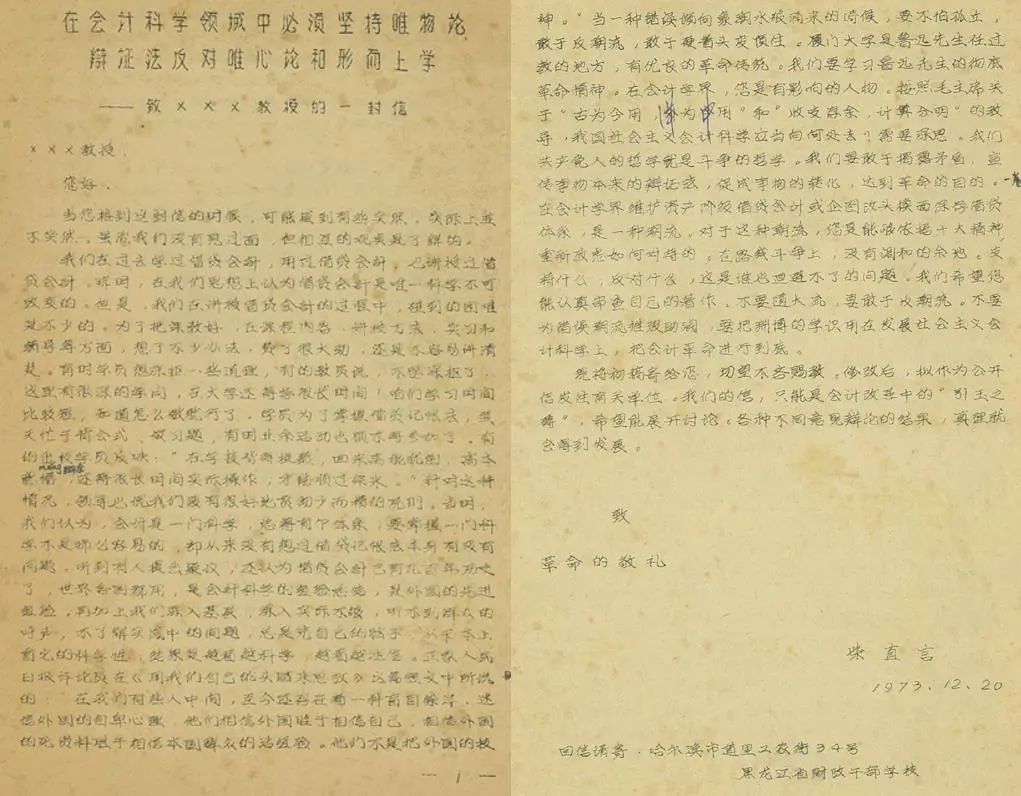 在会计科学领域中必须坚持唯物论
辩证法反对唯心论和形而上学
——致×××教授的一封信
×××教授：
您好。
当您接到这封信的时候，可能感到有些突然。实际上并
不突然。虽然我们没有见过面，但相互的观点是了解的。
我们在过去学过借贷会计，用过借贷会计，也讲授过借
贷会计。那时，在我们思想上认为借贷会计是唯一科学不可
改变的。但是，我们在讲授借贷会计的过程中，碰到的困难
是不少的。为了把课教好，在课程内容、讲授方法、实习和
辅导等方面，想了不少办法，费了很大劲，还是不容易讲清
楚。有时学员想深一些道理，有的教员说，不要深抠了，
这里有很深的学问，在大学还得学很长时间！咱们学习时间
比较短，知道怎么做就行了。学员为了掌握借贷记帐法，整
天忙于背公式、做习题，有时业余活动也顾不得参加了。有
的出校学员反映：“在学校背得挺熟，回来
还得很长时间实际操作，才能顺过架来。”针对这种
情况，领导也说我们没有很好地贯彻少而精的原则。当时，
我们认为，会计是一门科学，总得有个体系，要掌握一门科
学不是那么容易的，却从来没有想过借贷记帐法本身有没有
问题。听到别人提出疑议，还认为借贷会计已有几百年历史
了，世界各国都用，是会计科学的经验总结，是外国的先进
经验。再加上我们深入基层、深入实际不够，听不到群众的
呼声，不了解实际中的问题，总是凭自己的 从书本上
看它的科学性，结果是越看越科学，越看越迷信。正象人民
日报评论员在《用我们自己的头脑来思考》这篇短文中所说
的：“在我们有些人中间，至今还存在着一种盲目崇洋、迷
信外国的自卑心理。他们相信外国胜于相信自己，相信外国
的死资料胜于相信本国群众的活经验。他们不是把外国的技
— 1 —
神。”当一种错误倾向象潮水般涌来的时候，要不怕孤立，
敢于反潮流，敢于硬着头皮顶住。厦门大学是鲁迅先生任过
教的地方，有优良的革命传统。我们要学习鲁迅先生的彻底
革命精神。在会计学界，您是有影响的人物。按照毛主席关
于“古为今用，洋为中用”和“收支存余，计算分明”的教
导，我国社会主义会计科学应当向何处去？需要深思。我们
共产党人的哲学就是斗争的哲学。我们要敢于揭露矛盾，宣
传事物本来的辩证法，促成事物的转化，达到革命的目的。
在会计学界维护资产阶级借贷会计或企图改头换面保存借贷
体系，是一种潮流。对于这种潮流，您是能够依据十大精神
重新考虑如何对待的。在路线斗争上，没有调和的余地。支
持什么，反对什么，这是谁也回避不了的问题。我们希望您
能认真审查自己的著作，不要随大流，要敢于反潮流。不要
为错误潮流推波助澜，要把渊博的学识用在发展社会主义会
计科学上，把会计革命进行到底。
现将初稿寄给您，切望不吝赐教。修改后，拟作为公开
信发往有关单位。我们的信，只能是会计改革中的“引玉之
砖”，希望能展开讨论。各种不同意见辩论的结果，真理就
会得到发展。
致
革命的敬礼
柴直言
1973.12.20
回信请寄：哈尔滨市道里工农街34号
黑龙江省财政干部学校